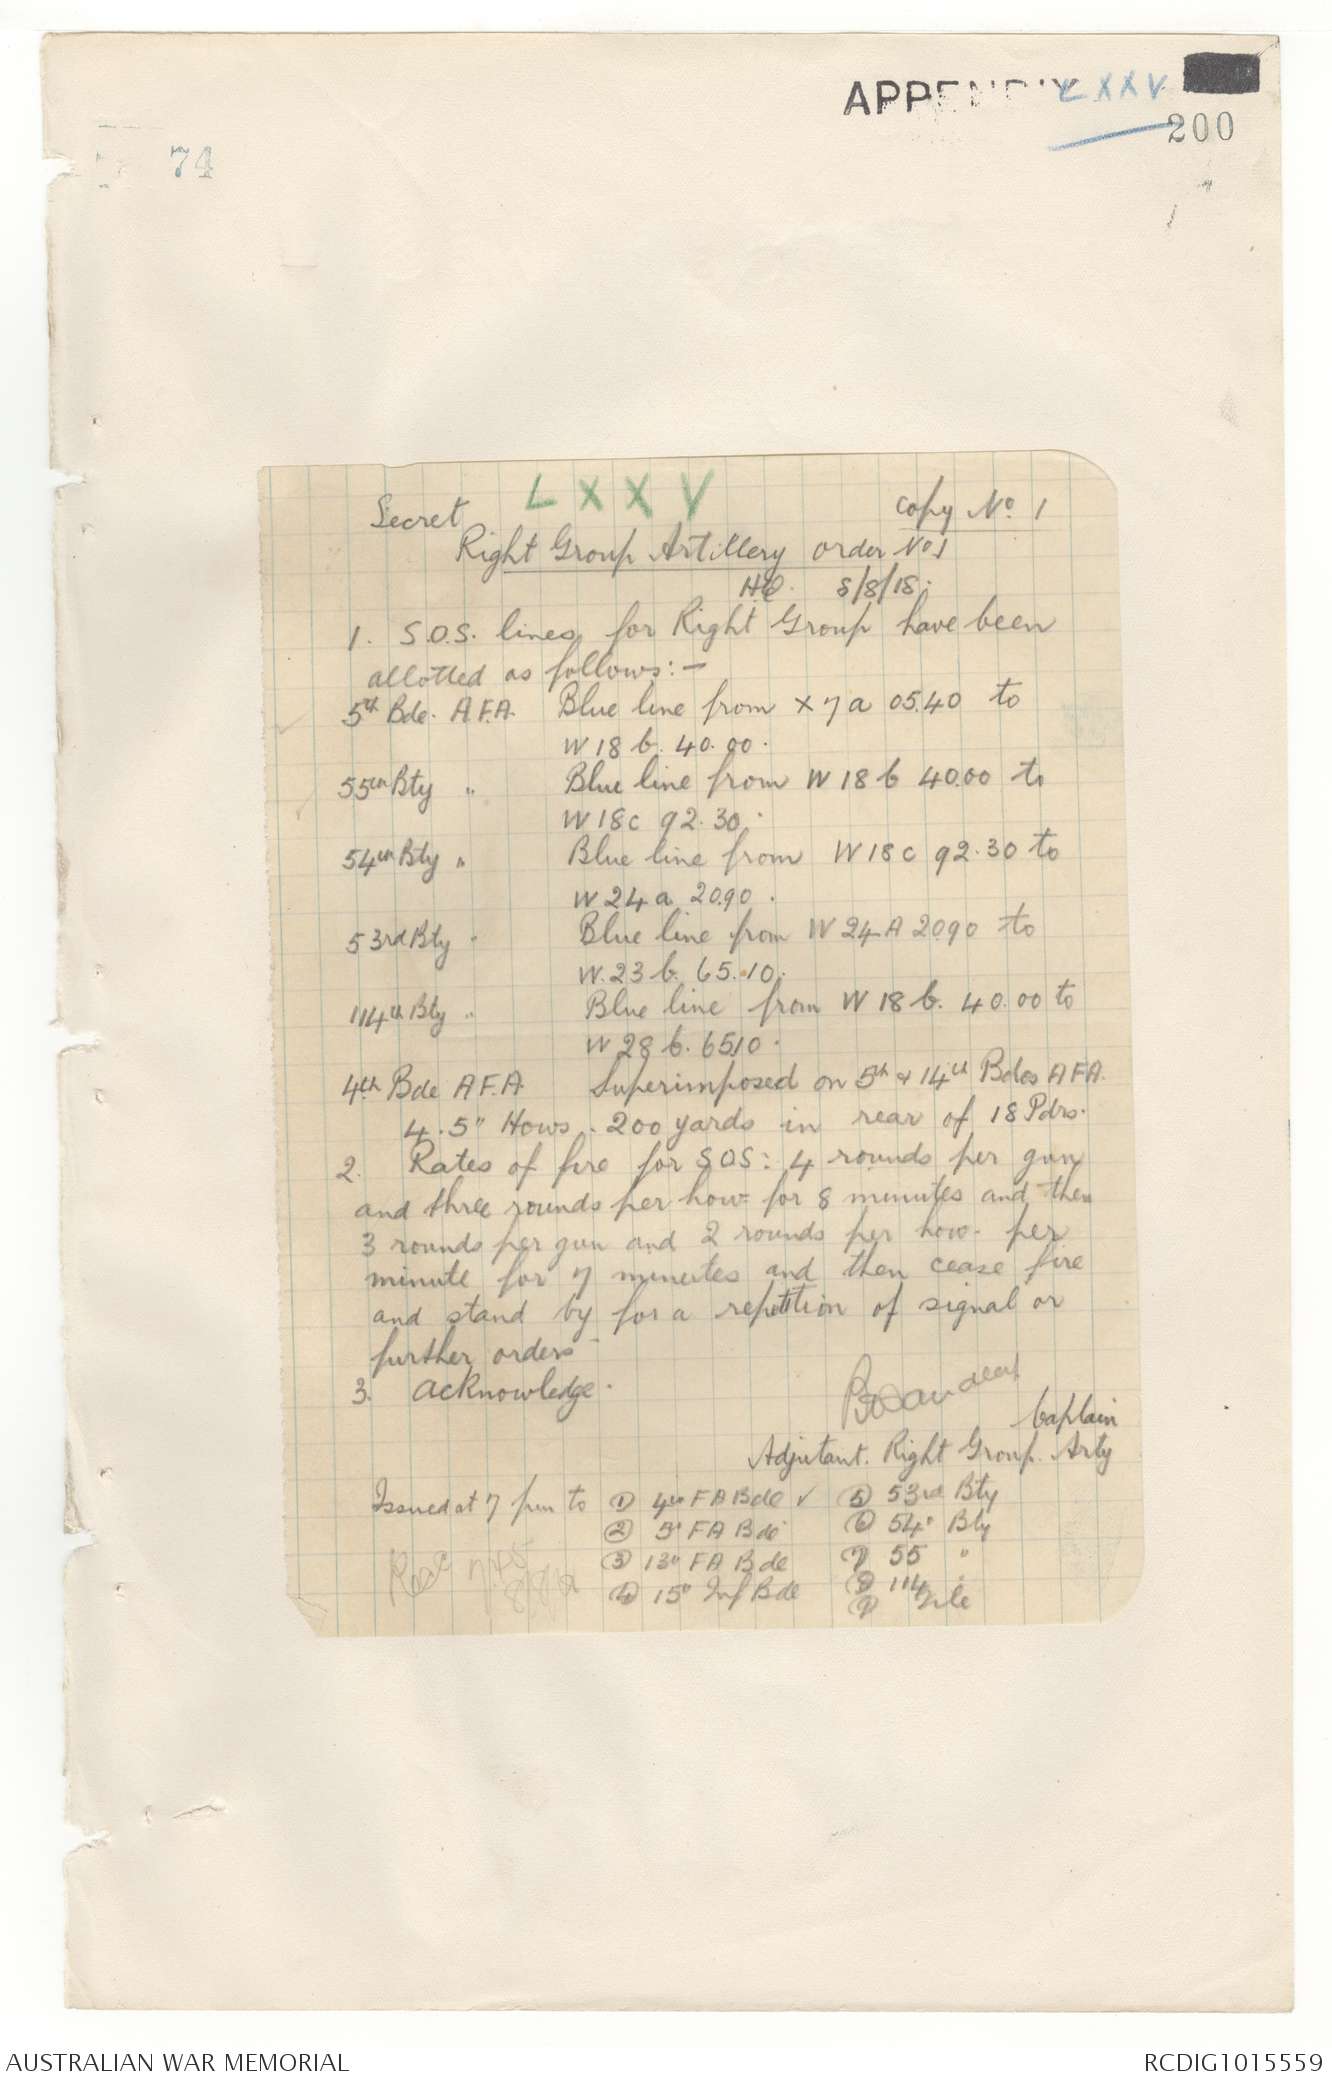 APPENDIX LXXV
200
74
LXXV
Secret
Copy No. 1
Right Group Artillery order No 1
HQ. 8/8/18.
1. S.O.S. lines for Right Group have been
allotted as follows:-
5th Bde. A.F.A. Blue line from X 7 a 05.40 to
W 18 b. 40.00.
55th Bty " Blue line from W 18 b 40.00 to
W 18c 92.30.
54th Bty " Blue line from W 18 c 92.30 to
W 24 a 20.90.
53rd Bty " Blue line from W 24 A 2090 to
W. 23 b. 65.10.
114th Bty " Blue line from W 18 b. 40.00 to
W 28 b. 6510.
4th Bde A.F.A. Superimposed on 5th & 14th Bdes A F A.
4.5" Hows. 200 yards in rear of 18 Pdrs.
2. Rates of fire for SOS: 4 rounds per gun
and three rounds per how= for 8 minutes and then
3 rounds per gun and 2 rounds per how. per
minute for 7 minutes and then cease fire
and stand by for a repetition of signal or
further orders
3. Acknowledge.
Captain
Adjutant. Right Group. Arty
Issued at 7 pm to ① 4th F A Bde ✓ ⑤ 53rd Bty
② 5" F A Bde ⑥ 54" Bty
③ 13" F A Bde ⑦ 55 "
④ 15" Inf Bde ⑧ 114 "
⑨ File
Rec 7.45
8/8/18
AUSTRALIAN WAR MEMORIAL
RCDIG1015559